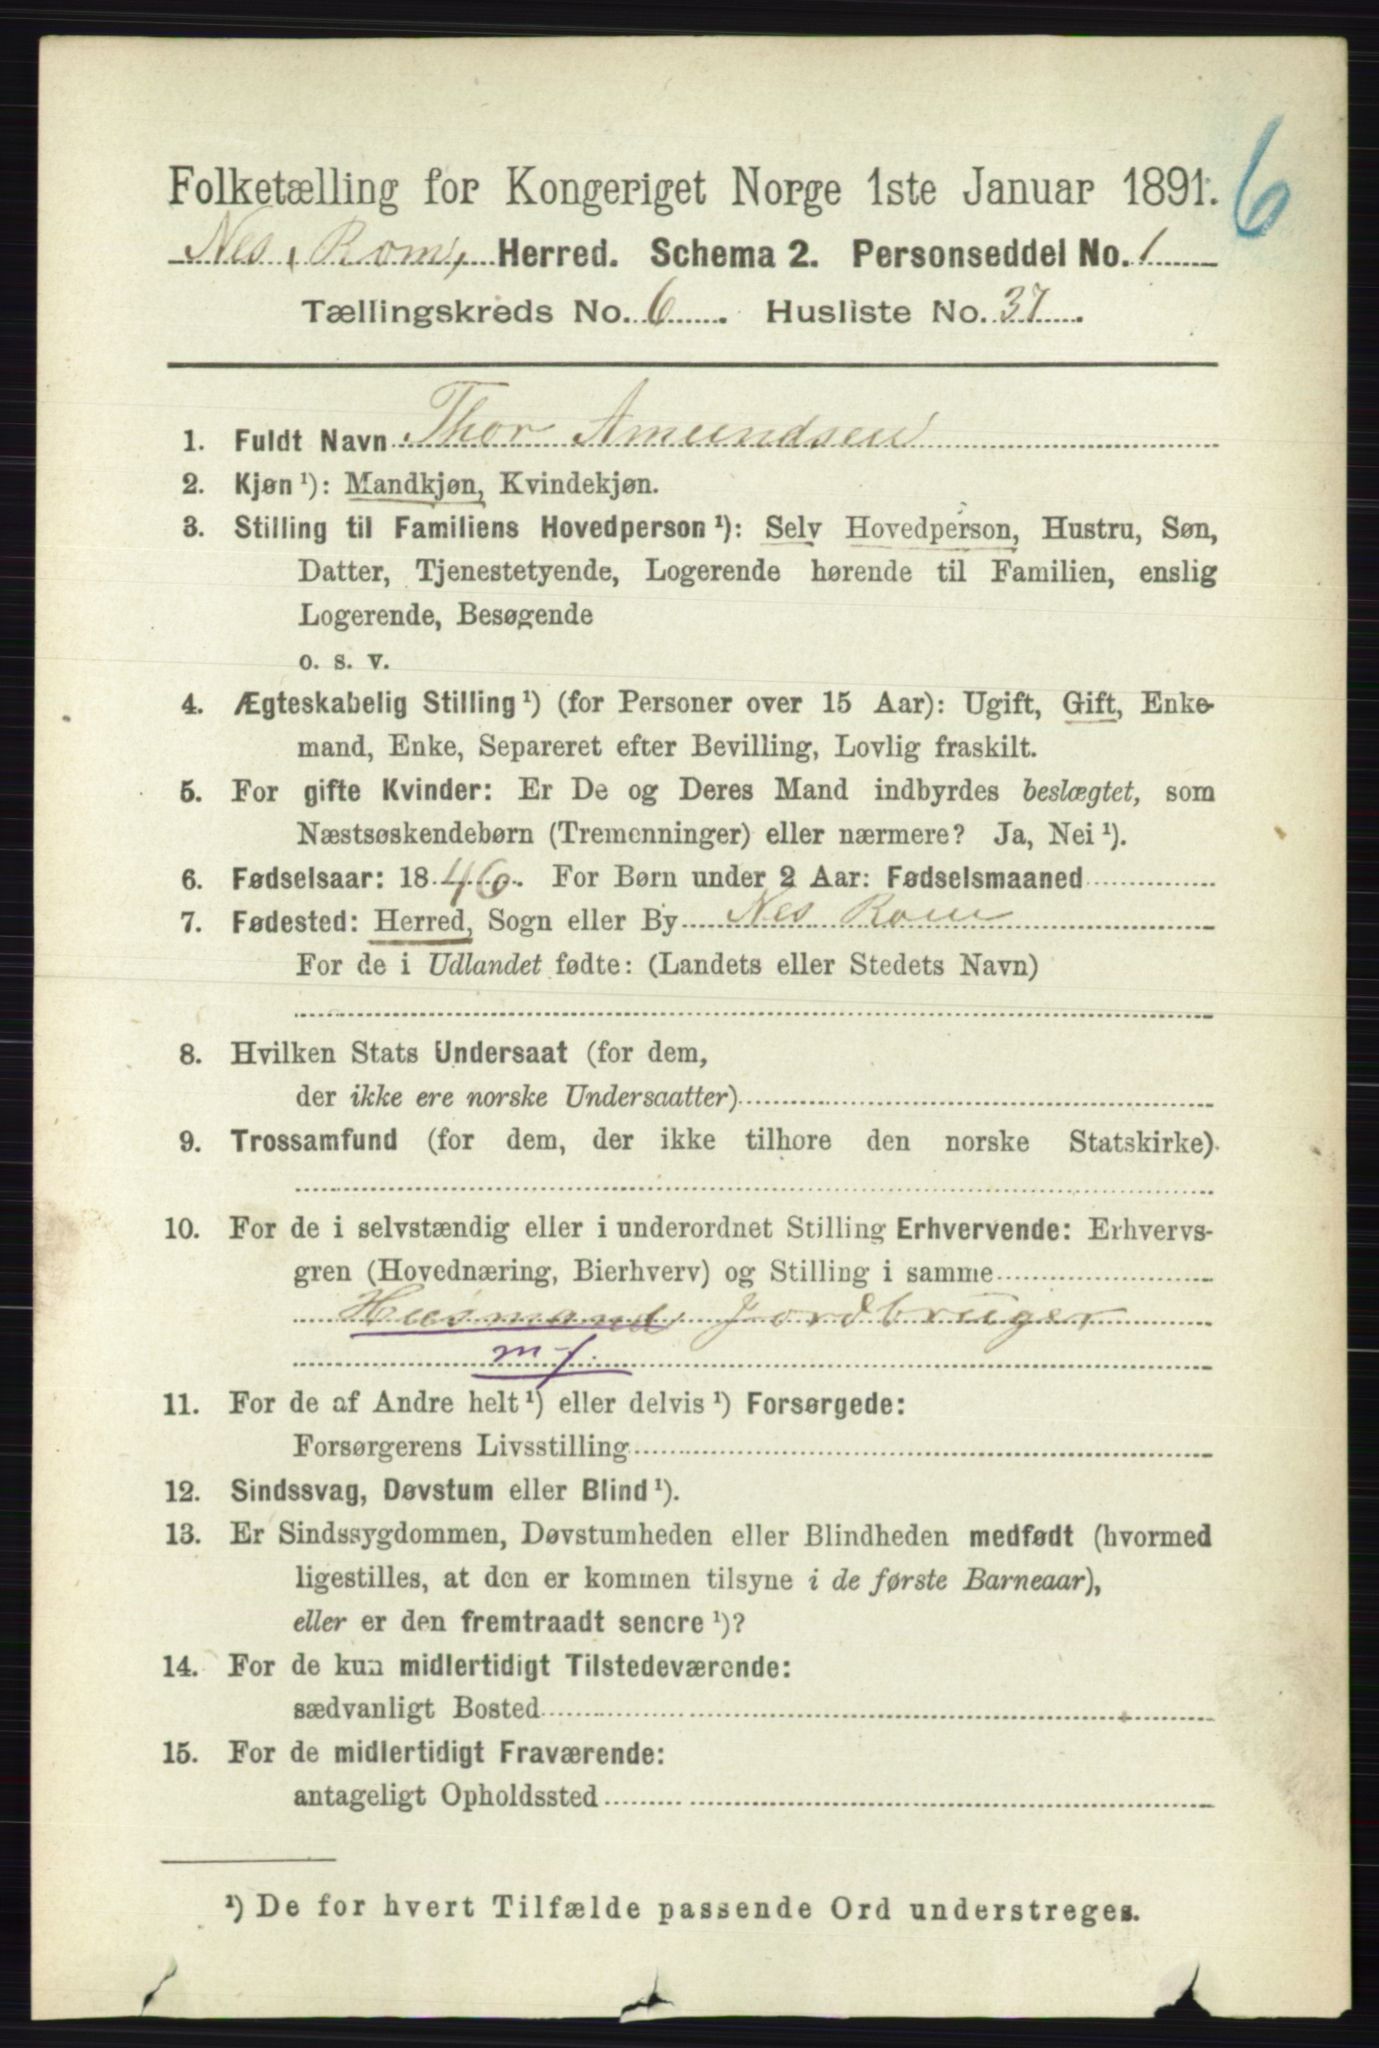 6
Folketælling for Kongeriget Norge 1ste Januar 1891.
Nes, Rom, Herred. Schema 2. Personseddel No. 1
Tællingskreds No. 6. Husliste No. 37.
1. Fuldt Navn Thor Amundsen
2. Kjøn ¹): Mandkjøn, Kvindekjøn.
3. Stilling til Familiens Hovedperson ¹): Selv Hovedperson, Hustru, Søn,
Datter, Tjenestetyende, Logerende hørende til Familien, enslig
Logerende, Besøgende
o. s. v.
4. Ægteskabelig Stilling ¹) (for Personer over 15 Aar): Ugift, Gift, Enke-
mand, Enke, Separeret efter Bevilling, Lovlig fraskilt.
5. For gifte Kvinder: Er De og Deres Mand indbyrdes beslægtet, som
Næstsøskendebørn (Tremenninger) eller nærmere? Ja, Nei ¹).
6. Fødselsaar: 1846. For Børn under 2 Aar: Fødselsmaaned
7. Fødested: Herred, Sogn eller By Nes Rom
For de i Udlandet fødte: (Landets eller Stedets Navn)
8. Hvilken Stats Undersaat (for dem,
der ikke ere norske Undersaatter)
9. Trossamfund (for dem, der ikke tilhøre den norske Statskirke)
10. For de i selvstændig eller i underordnet Stilling Erhvervende: Erhvervs-
gren (Hovednæring, Bierhverv) og Stilling i samme
Husmand, Jordbruger
m j.
11. For de af Andre helt ¹) eller delvis ¹) Forsørgede:
Forsørgerens Livsstilling
12. Sindssvag, Døvstum eller Blind ¹).
13. Er Sindssygdommen, Døvstumheden eller Blindheden medfødt (hvormed
ligestilles, at den er kommen tilsyne i de første Barneaar),
eller er den fremtraadt senere ¹)?
14. For de kun midlertidigt Tilstedeværende:
sædvanligt Bosted
15. For de midlertidigt Fraværende:
antageligt Opholdssted
¹) De for hvert Tilfælde passende Ord understreges.